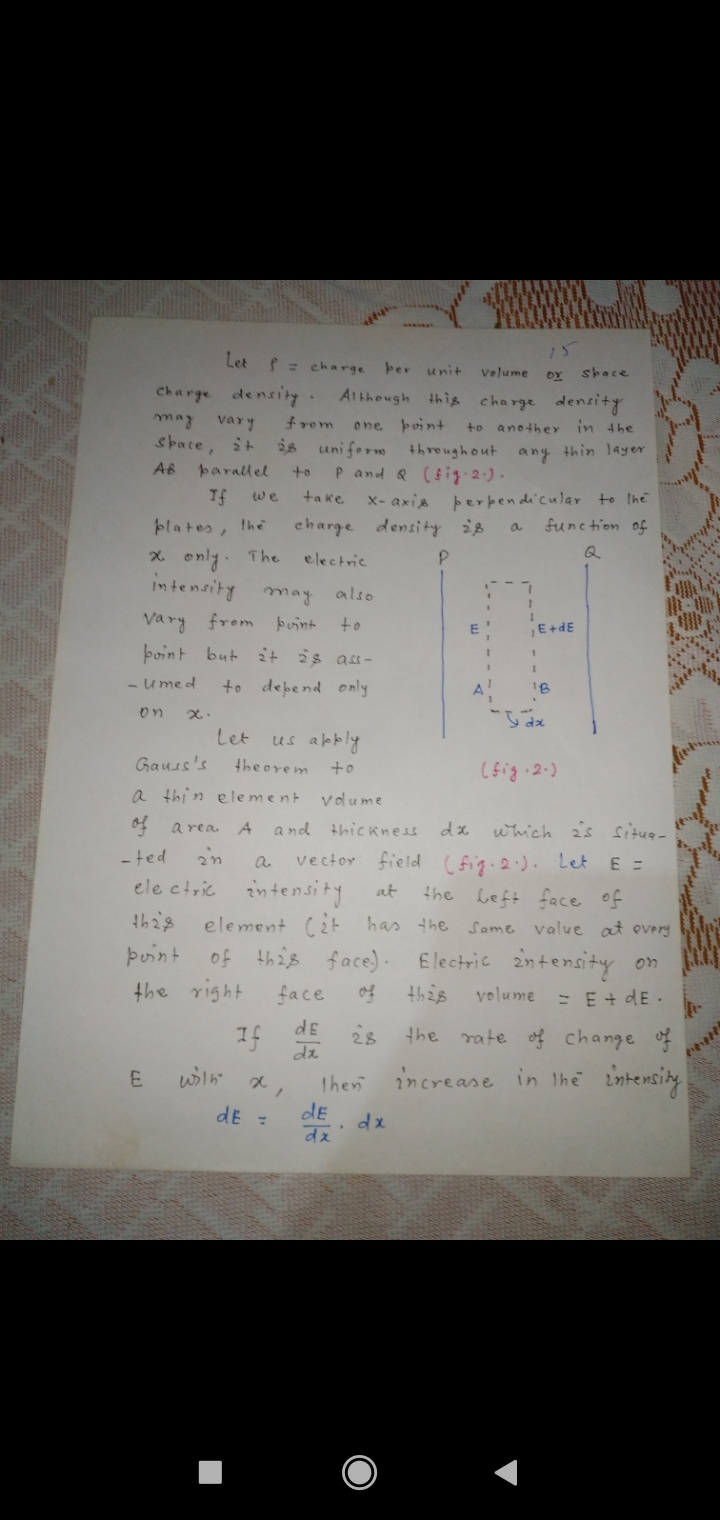 15
Let ρ = charge per unit volume or space
charge density. Although this charge density
may vary from one point to another in the
space, it is uniform throughout any thin layer
AB parallel to P and Q (fig.2.).
If we take x-axis perpendicular to the
plates, the charge density is a function of
x only. The electric
intensity may also
vary from point to
point but it is ass-
-umed to depend only
on x.
Let us apply
Gauss's theorem to
a thin element volume
P
Q
E
E+dE
A
B
dx
(fig.2.)
of area A and thickness dx which is situa-
-ted in a vector field (fig.2.). Let E =
electric intensity at the left face of
this element (it has the same value at every
point of this face). Electric intensity on
the right face of this volume = E + dE.
If dE/dx is the rate of change of
E with x, then increase in the intensity
dE = dE/dx . dx